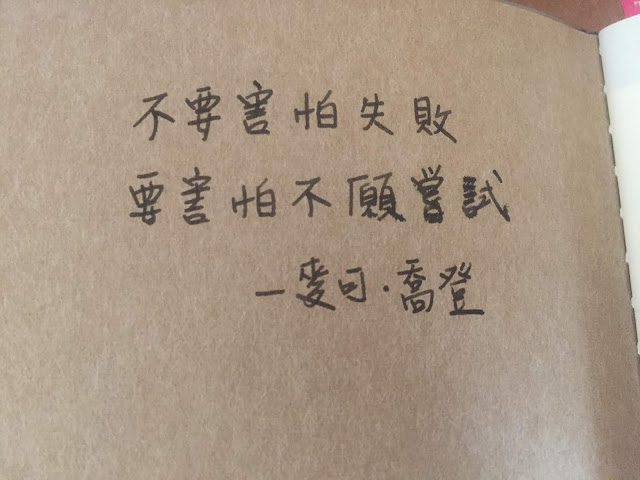 不要害怕失敗
要害怕不願嘗試
—麥可·喬登